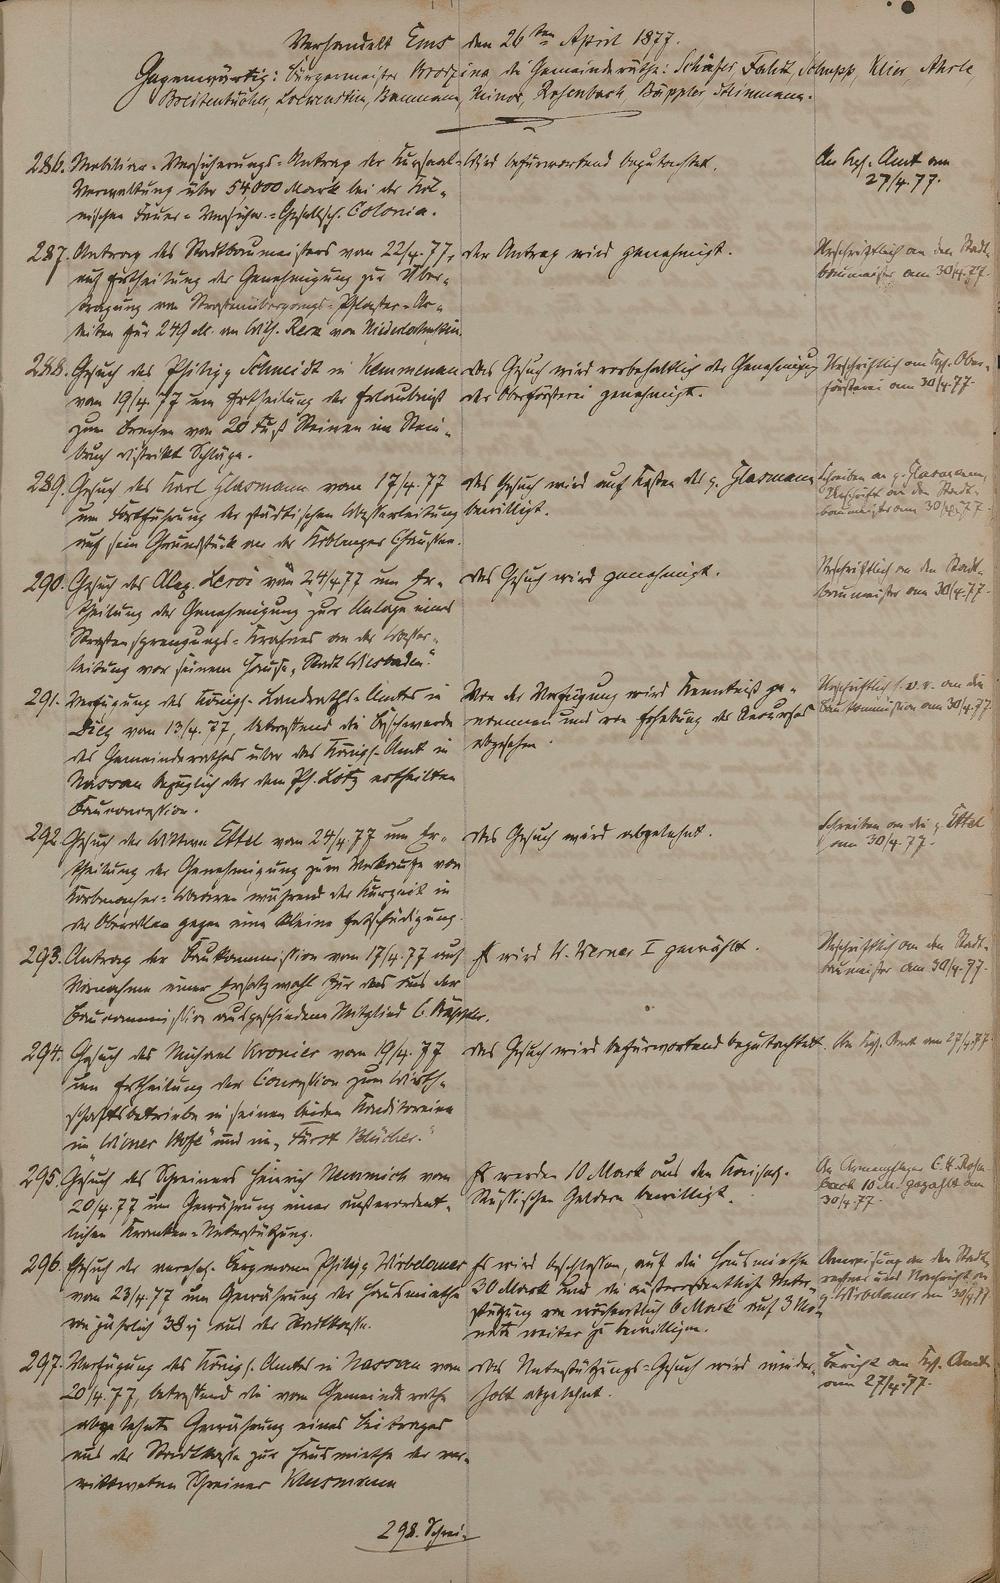 Verhandelt Ems den 26ten April 1877.
Gegenwärtig: Bürgermeister die Gemeinderäthe: Schäfer, Schupp,
Breitenbücher, Loewenstein, Baumann, Rosenbach, Bäppler
286. Mobiliar-Versicherungs-Antrag der Kursaal-
Verwaltung über 54,000 Mark bei der Köl-
nischen Feuer-Versicher.-Gesellsch. Colonia.
Wird befürwortend begutachtet.
An Kgl. Amt am
27/4.77.
287. Antrag des Stadtbaumeisters vom 22/4.77,
auf Ertheilung der Genehmigung zur Über-
tragung von Straßenübergangs-Pflaster-Ar-
beiten für 249 M. an Wilh. von
Der Antrag wird genehmigt.
Urschriftlich an den Stadt-
baumeister am 30/4.77.
288. Gesuch des Philipp Schmidt in Kemmenau
vom 19/4.77 um Ertheilung der Erlaubniß
zum Brechen von 20 Fuß Steinen im Stein-
bruch Distrikt
Das Gesuch wird vorbehaltlich der Genehmigung
der Oberförsterei genehmigt.
Urschriftlich an Kgl. Ober-
försterei am 30/4.77.
289. Gesuch des Karl Glasmann vom 17/4.77
um Fortführung der städtischen Wasserleitung
auf sein Grundstück an der Koblenzer Chaussee.
Das Gesuch wird auf Kosten des p. Glasmann
bewilligt.
Schreiben an p. Glasmann,
Urschrift an den Stadt-
baumeister am 30/4.77.
290. Gesuch des Alex. Leroi vom 24/4.77 um Er-
theilung der Genehmigung zur Anlage eines
Straßensprengungs-Krahnes an der Wasser-
leitung vor seinem Hause „Stadt Wiesbaden."
Das Gesuch wird genehmigt.
Urschriftlich an den Stadt-
baumeister am 30/4.77.
291. Verfügung des Königl. Landraths-Amtes in
Diez vom 13/4.77, betreffend die Beschwerde
des Gemeinderathes über das Königl. Amt in
Nassau bezüglich der dem Ph. Lotz ertheilten
Bauconcession.
Von der Verfügung wird Kenntniß ge-
nommen und von Erhebung des Recurses
abgesehen.
Urschriftlich s.v.r. an die
Baukommission am 30/4.77.
292. Gesuch der Wittwe Ettel vom 24/4.77 um Er-
theilung der Genehmigung zum Verkaufe von
Korbmacher-Waaren während der Kurzeit in
der Oberallee gegen eine kleine Entschädigung.
Das Gesuch wird abgelehnt.
Schreiben an die p. Ettel
am 30/4.77.
293. Antrag der Baukommission vom 17/4.77 auf
Vornahme einer Ersatzwahl für das aus der
Baucommission ausgeschiedene Mitglied C. Bäppler.
Es wird W. Werner I gewählt.
Urschriftlich an den Stadt-
baumeister am 30/4.77.
294. Gesuch des Michael vom 19/4.77
um Ertheilung der Concession zum Wirth-
schaftsbetriebe in seinen beiden Konditoreien
im „Wiener Hofe" und im „Fürst Blücher."
Das Gesuch wird befürwortend begutachtet.
An Kgl. Amt am 27/4.77.
295. Gesuch des Schreiners Heinrich vom
20/4.77 um Gewährung einer außerordent-
lichen Kranken-Unterstützung.
Es werden 10 Mark aus den Kaiserl.
Russischen Geldern bewilligt.
An Armenpfleger Rosen-
bach 10 M. gezahlt am
30/4.77.
296. Gesuch der Bergmann Philipp
vom 23/4.77 um Gewährung der Hausmiethe
von jährlich 38 aus der Stadtkasse.
Es wird beschlossen, auf die Hausmiethe
30 Mark und die außerordentliche Unter-
stützung von wöchentlich 6 Mark auf 3 Mo-
nate weiter zu bewilligen.
Anweisung an den Stadt-
rechner und Nachricht an
p. am 30/4.77
297. Verfügung des Königl. Amtes in Nassau vom
20/4.77, betreffend die vom Gemeinderathe
abgelehnte Gewährung eines Beitrages
aus der Stadtkasse zur Hausmiethe der ver-
wittweten Schreiner
Das Unterstützungs-Gesuch wird wieder-
holt abgelehnt.
Bericht an Kgl. Amt
am 27/4.77.
298. Schrei-